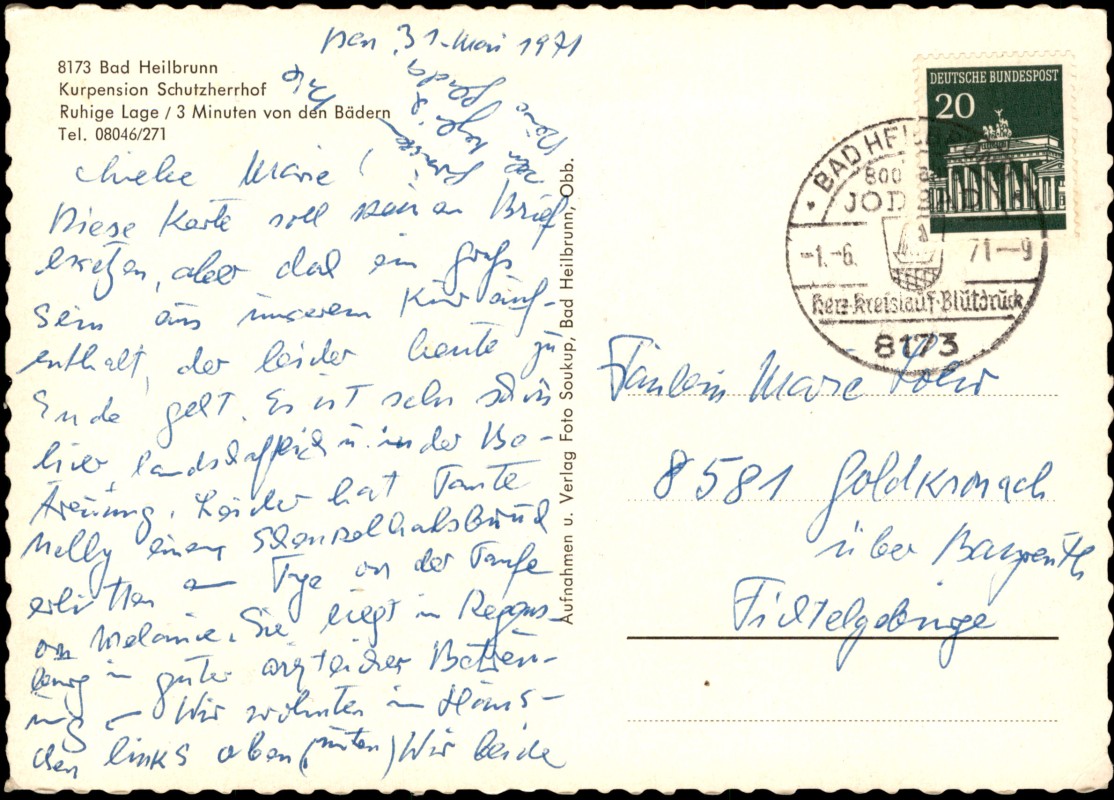 8173 Bad Heilbrunn
Kurpension Schutzherrhof
Ruhige Lage / 3 Minuten von den Bädern
Tel. 08046/271
Den 31. Mai 1971
Liebe Marie!
Diese Karte soll keinen Brief
ersetzen, aber doch ein Gruß
sein aus unserem Kurauf-
enthalt, der leider heute zu
Ende geht. Es ist sehr schön
hier landschaftlich u. in der Be-
treuung. Leider hat Tante
Melly einen Schenkelhalsbruch
erlitten am Tage der Taufe
von Melanie. Sie liegt in Regens-
burg in guter ärztlicher Betreu-
ung – Wir wohnten im Häus-
chen links oben (unten) Wir beide
Aufnahmen u. Verlag Foto Soukup, Bad Heilbrunn, Obb.
DEUTSCHE BUNDESPOST
20
BAD HEILBRUNN
800
JODBAD
-1.-6. 71-9
Herz-Kreislauf-Blutdruck
8173
Fräulein Marie
8581 Goldkronach
über Bayreuth
Fichtelgebirge